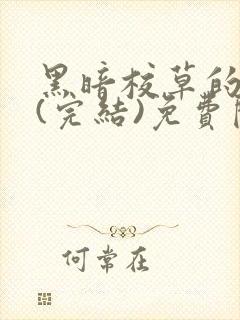 黑暗校草的
(完結)免費
何常在